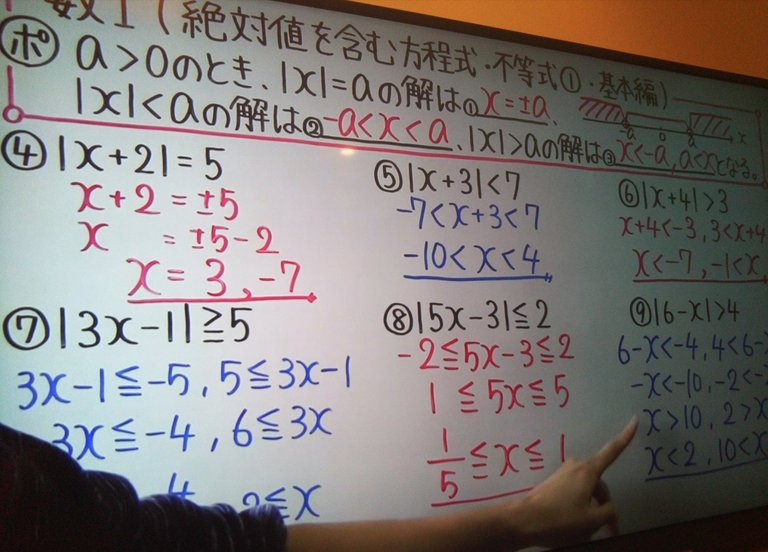 数Ⅰ(絶対値を含む方程式・不等式①・基本編)
ポ a>0のとき、|x|=aの解は①x=±a、
|x|<aの解は②-a<x<a、|x|>aの解は③x<-a,a<xとなる。
-a 0 a x
④|x+2|=5
x+2=±5
x =±5-2
x=3,-7
⑤|x+3|<7
-7<x+3<7
-10<x<4
⑥|x+4|>3
x+4<-3,3<x+4
x<-7,-1<x
⑦|3x-1|≧5
3x-1≦-5,5≦3x-1
3x≦-4,6≦3x
4 2≦x
⑧|5x-3|≦2
-2≦5x-3≦2
1≦5x≦5
1/5≦x≦1
⑨|6-x|>4
6-x<-4,4<6-
-x<-10,-2<-
x>10,2>x
x<2,10<x